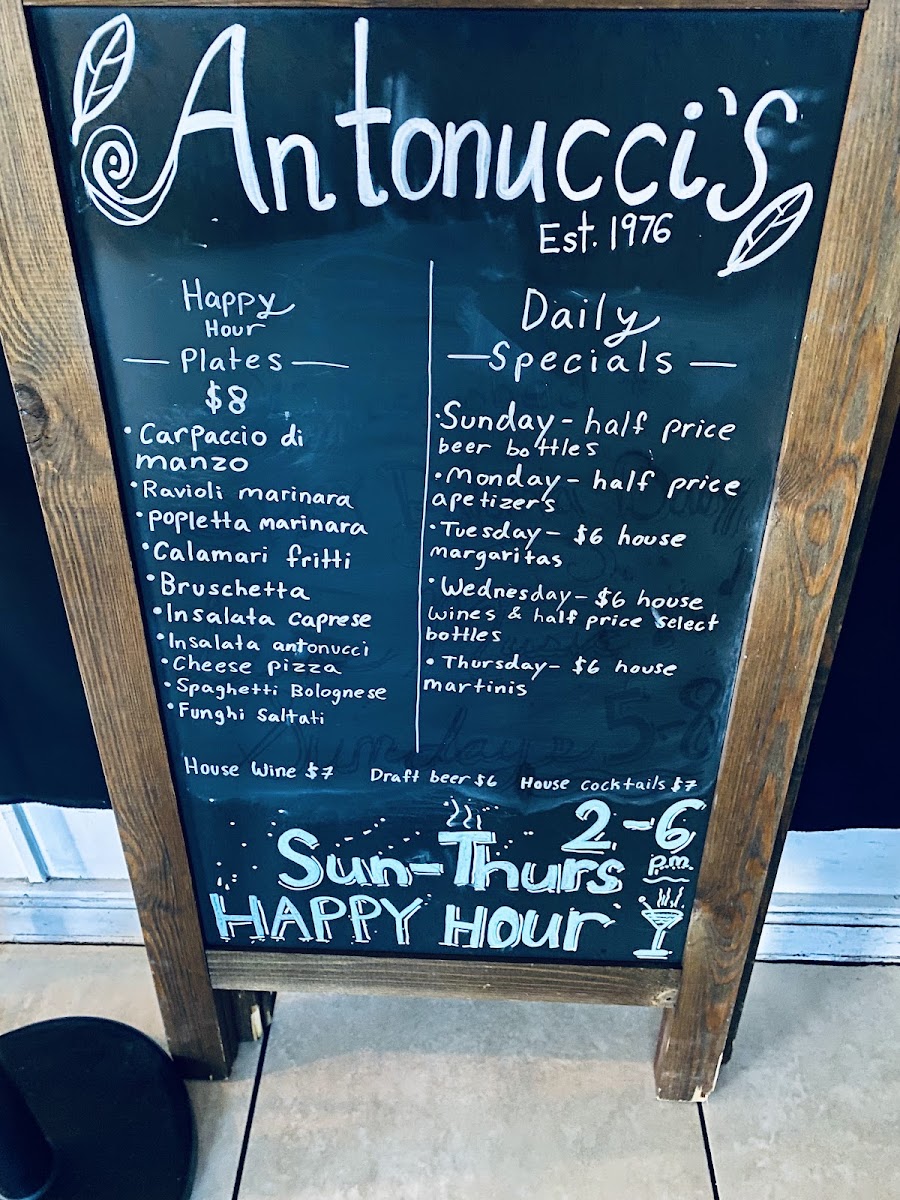 Antonucci's
Est. 1976
Happy
Hour
— Plates —
$8
• Carpaccio di
manzo
• Ravioli marinara
• Popletta marinara
• Calamari fritti
• Bruschetta
• Insalata caprese
• Insalata antonucci
• Cheese pizza
• Spaghetti Bolognese
• Funghi Saltati
Daily
— Specials —
• Sunday - half price
beer bottles
• Monday - half price
apetizers
• Tuesday - $6 house
margaritas
• Wednesday - $6 house
wines & half price select
bottles
• Thursday - $6 house
martinis
Sundays 5-8
House Wine $7 Draft beer $6 House cocktails $7
2-6
p.m.
Sun-Thurs
HAPPY Hour